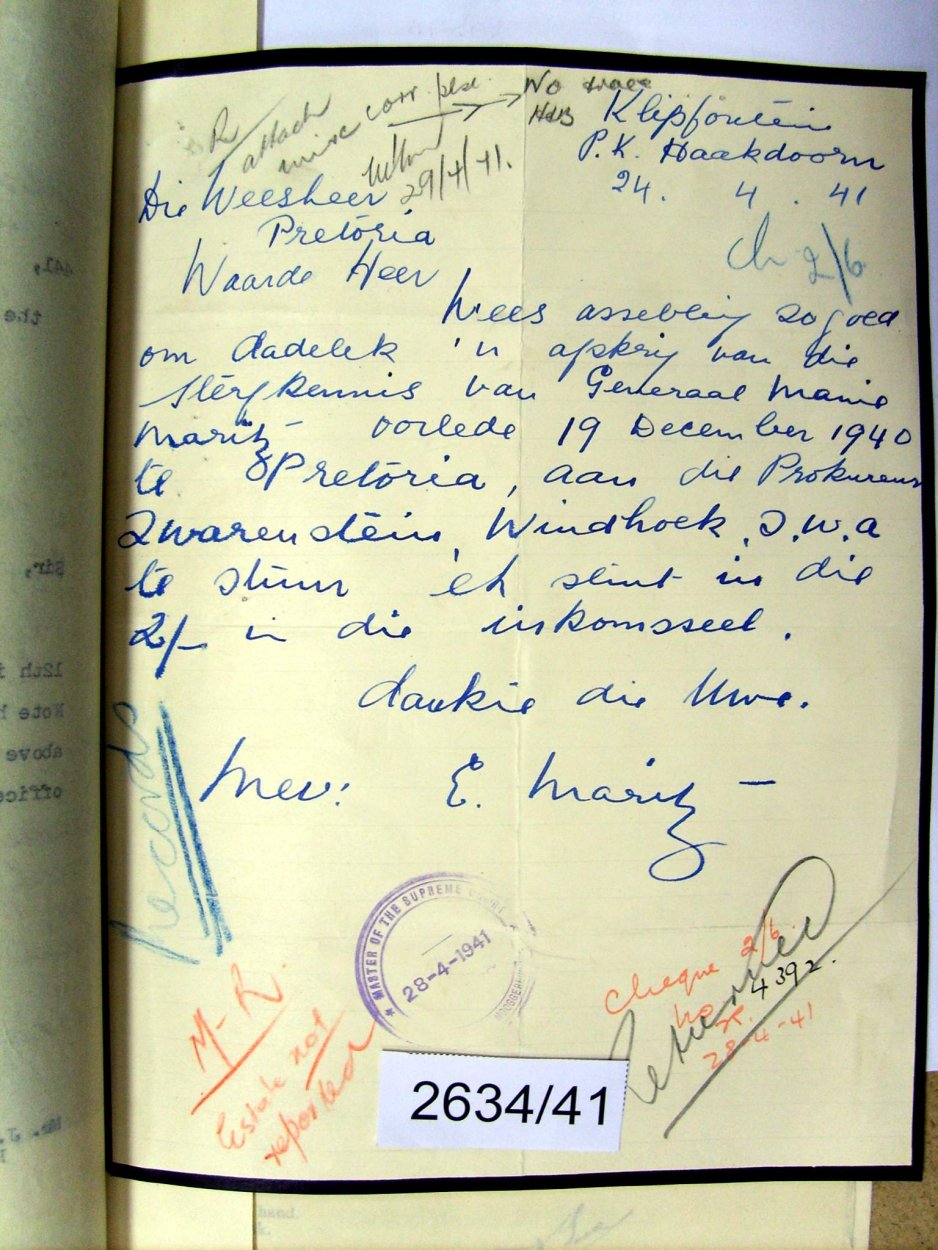 No trace
R attach misc corr. plse
29/4/41.
Klipfontein
P.K. Haakdoorn
24. 4. 41
Die Weesheer
Pretoria
Ch 2/6
Waarde Heer
Wees assebliej so goed
om dadelek 'n afskrif van die
sterfkennis van Generaal Manie
Maritz oorlede 19 December 1940
te Pretoria, aan die Prokureur
Zwarenstein, Windhoek, S.W.A
te stuur ek sluit in die
2/- in die inkomsseel.
dankie die Uwe.
Mev: E. Maritz
Records
* MASTER OF THE SUPREME COURT
28-4-1941
M-R.
Estate not
reported
Cheque 2/6.
No 4392.
28-4-41
Returned
2634/41
441,
the
Sir,
12th
Note
above
office
Mr. J.
hand.